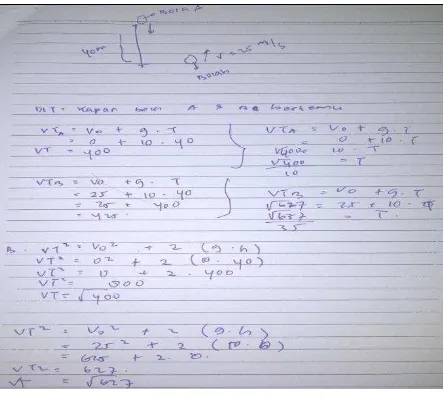 Bola A
40m
v = 25 m/s
Bola B
Dit = Kapan bola A & B bertemu
VTA = V0 + g . T
= 0 + 10 . 40
VT = 400
VTA = V0 + g . T
= 0 + 10 . T
10 . T
= T
10
VTB = V0 + g . T
= 25 + 10 . 40
= 25 + 400
= 425.
VTB = V0 + g . T
√627 = 25 + 10 . T
= T.
35
B. VT² = V0² + 2 (g . h)
VT² = 0² + 2 (10 . 40)
VT² = 0 + 2 . 400
VT² = 800
VT = √400
VT² = V0² + 2 (g . h)
= 25² + 2 (10 . 0)
= 625 + 2 . 0.
VT2 = 627.
VT = √627